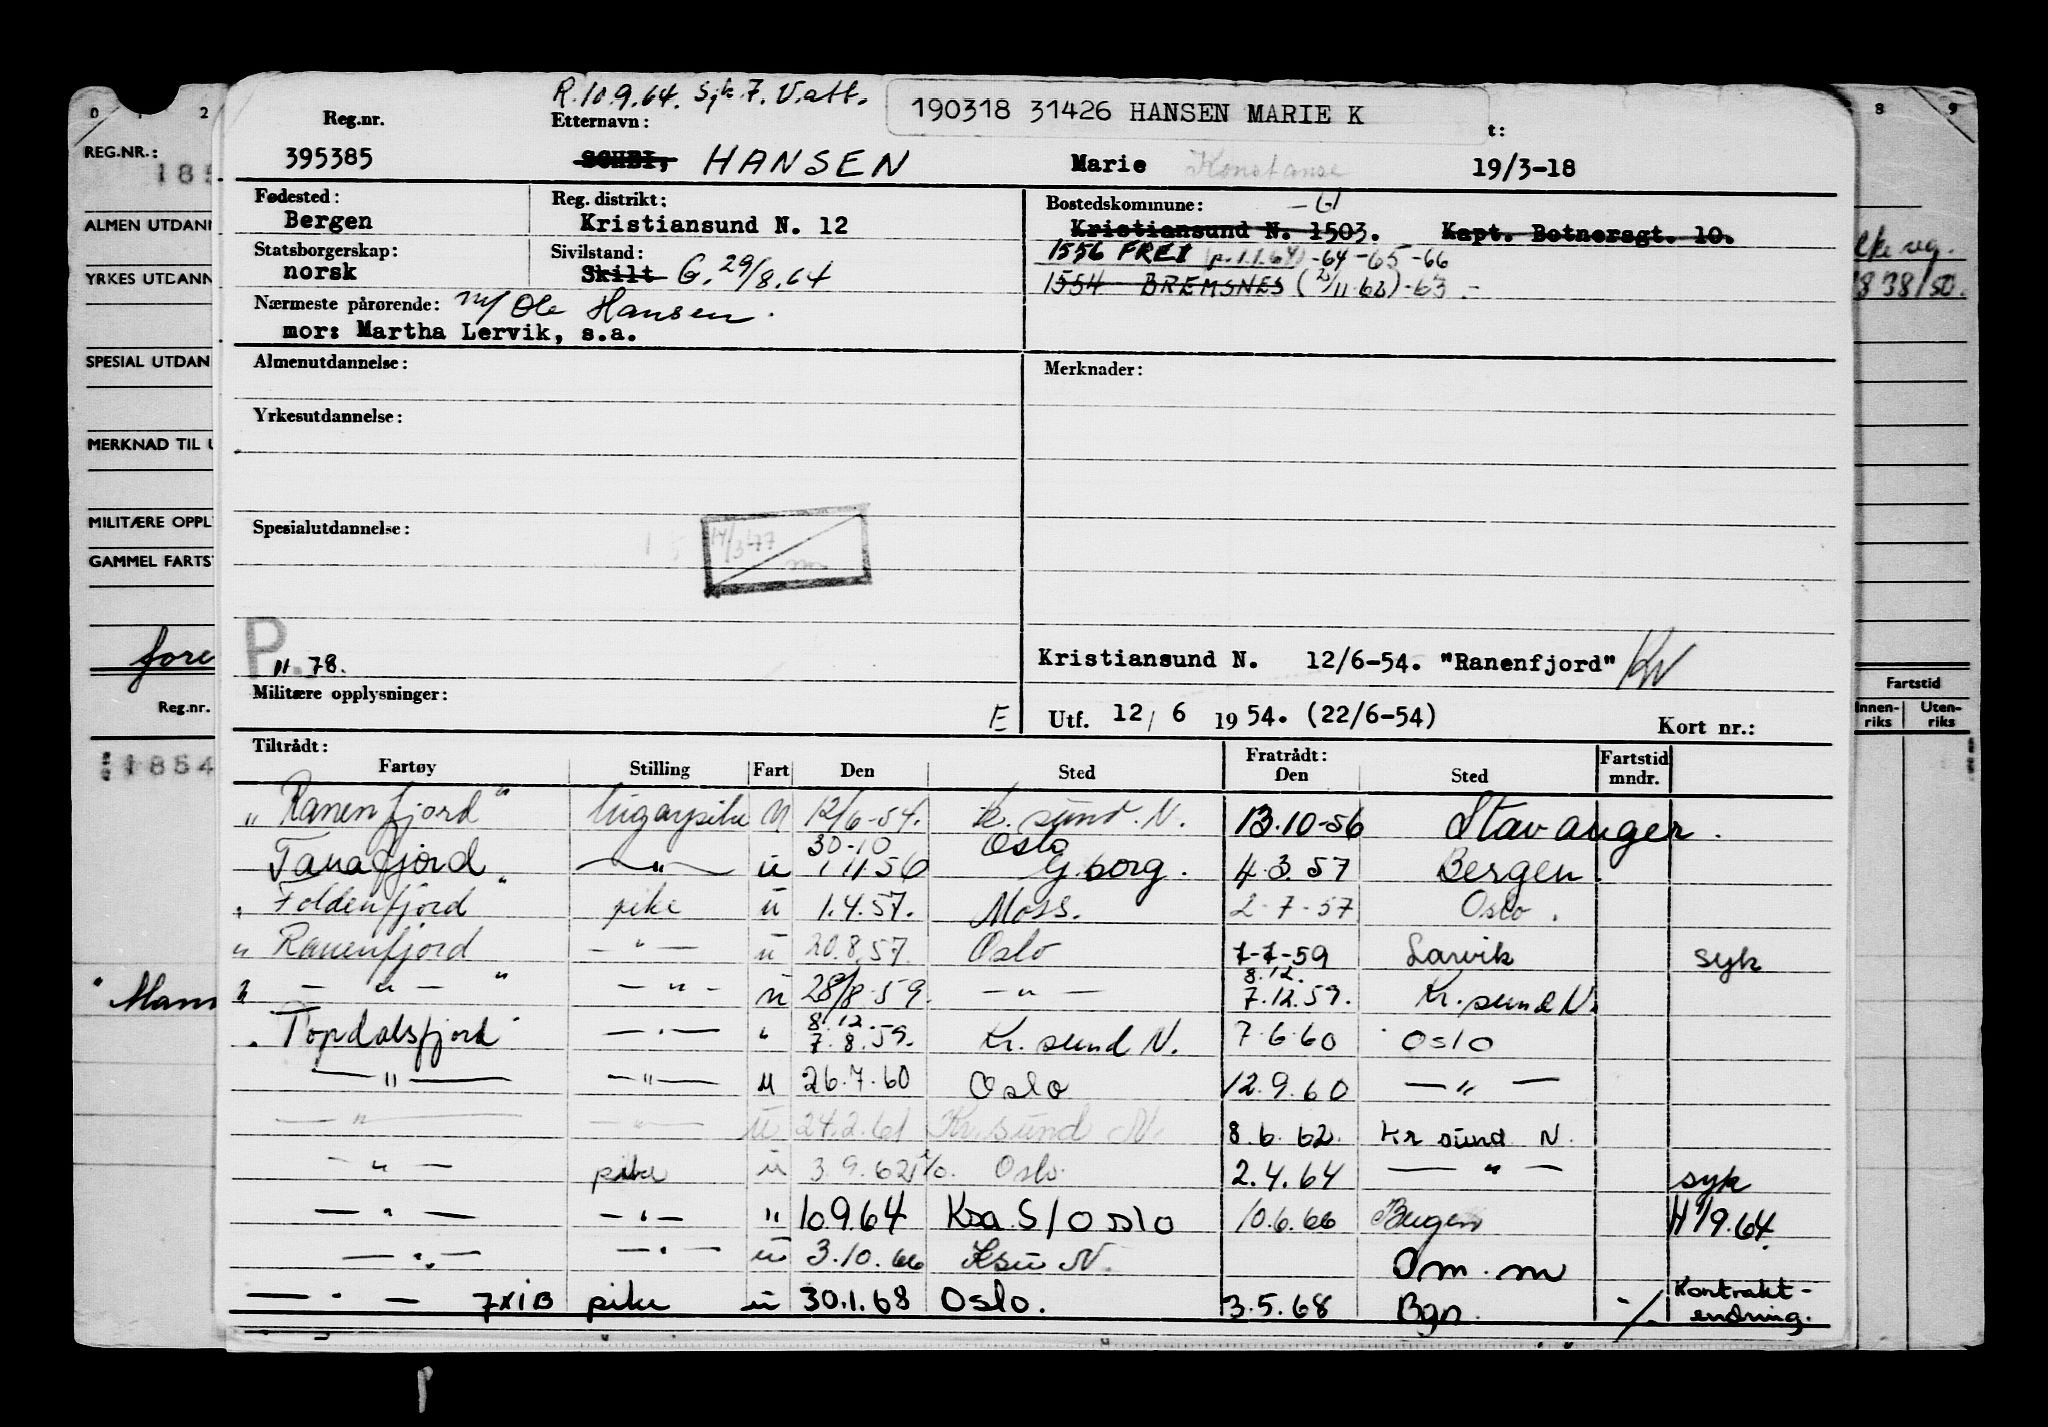 R.10.9.64. Sjk. 7. V.att.
190318 31426 HANSEN MARIE K
Reg.nr. Etternavn: t:
395385 HANSEN Marie Konstanse 19/3-18
Fødested: Reg. distrikt: Bostedskommune:
Bergen Kristiansund N. 12 Kristiansund N. 1503. Kapt. Botnersgt. 10.
Statsborgerskap: Sivilstand: 1556 FREI (p.1.1.64) -64 -65 -66
norsk Skilt G. 29/8.64 1554 BREMSNES (21/11.62) -63.-
Nærmeste pårørende: m/ Ole Hansen.
mor: Martha Lervik, s.a.
Almenutdannelse: Merknader:
Yrkesutdannelse:
Spesialutdannelse:
14/3-77
P.
11.78.
Kristiansund N. 12/6-54. "Ranenfjord"
Militære opplysninger: E Utf. 12/6 1954. (22/6-54) Kort nr.:
Tiltrådt: Fratrådt: Fartstid
Fartøy Stilling Fart Den Sted Den Sted mndr.
"Ranenfjord" lugarpike u 12/6-54. Kr. sund. N. 13.10-56 Stavanger.
30-10 Oslo
Tanafjord — " — u 1.11.56 Gborg. 4.3.57 Bergen.
"Foldenfjord" pike u 1.4.57. Moss. 2-7-57 Oslo.
"Ranenfjord — " — u 20.8.57. Oslo 7-7-59 Larvik syk
8.12.
— " — — " — u 28/8-59. — " — 7.12.59. Kr. sund N.
8.12.
"Topdalsfjord" — " — " 7.8.59. Kr. sund N. 7.6.60 Oslo
— " — — " — u 26.7.60 Oslo 12.9.60 — " —
— " — — " — u 24.2.61 Kr.sund N. 8.6.62. Kr sund N.
— " — pike u 3.9.62 Oslo. 2.4.64 — " — syk
— " — — " — " 10.9.64 Ksa S/Oslo 10.6.66 Bergen H 1/9.64.
— " — — " — u 3.10.66 Ksu N. Om. m
— " — 7XIB pike u 30.1.68 Oslo. 3.5.68 Bgn. -/. Kontrakt-
endring.
0 1 2
REG.NR.:
185
ALMEN UTDANN
YRKES UTDANN
SPESIAL UTDAN
MERKNAD TIL U
MILITÆRE OPPL
GAMMEL FARTS
fore
Reg.nr.
1854
8 9
38/50.
Fartstid
Innen- Uten-
riks riks